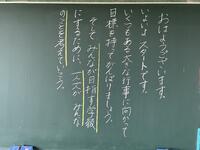 おはようございます。
いよいよスタートです。
いくつもある大きな行事に向かって
目標を持ってがんばりましょう。
そして みんなが目指す学級
にするために、一人一人が みんな
のことを考えていこう。